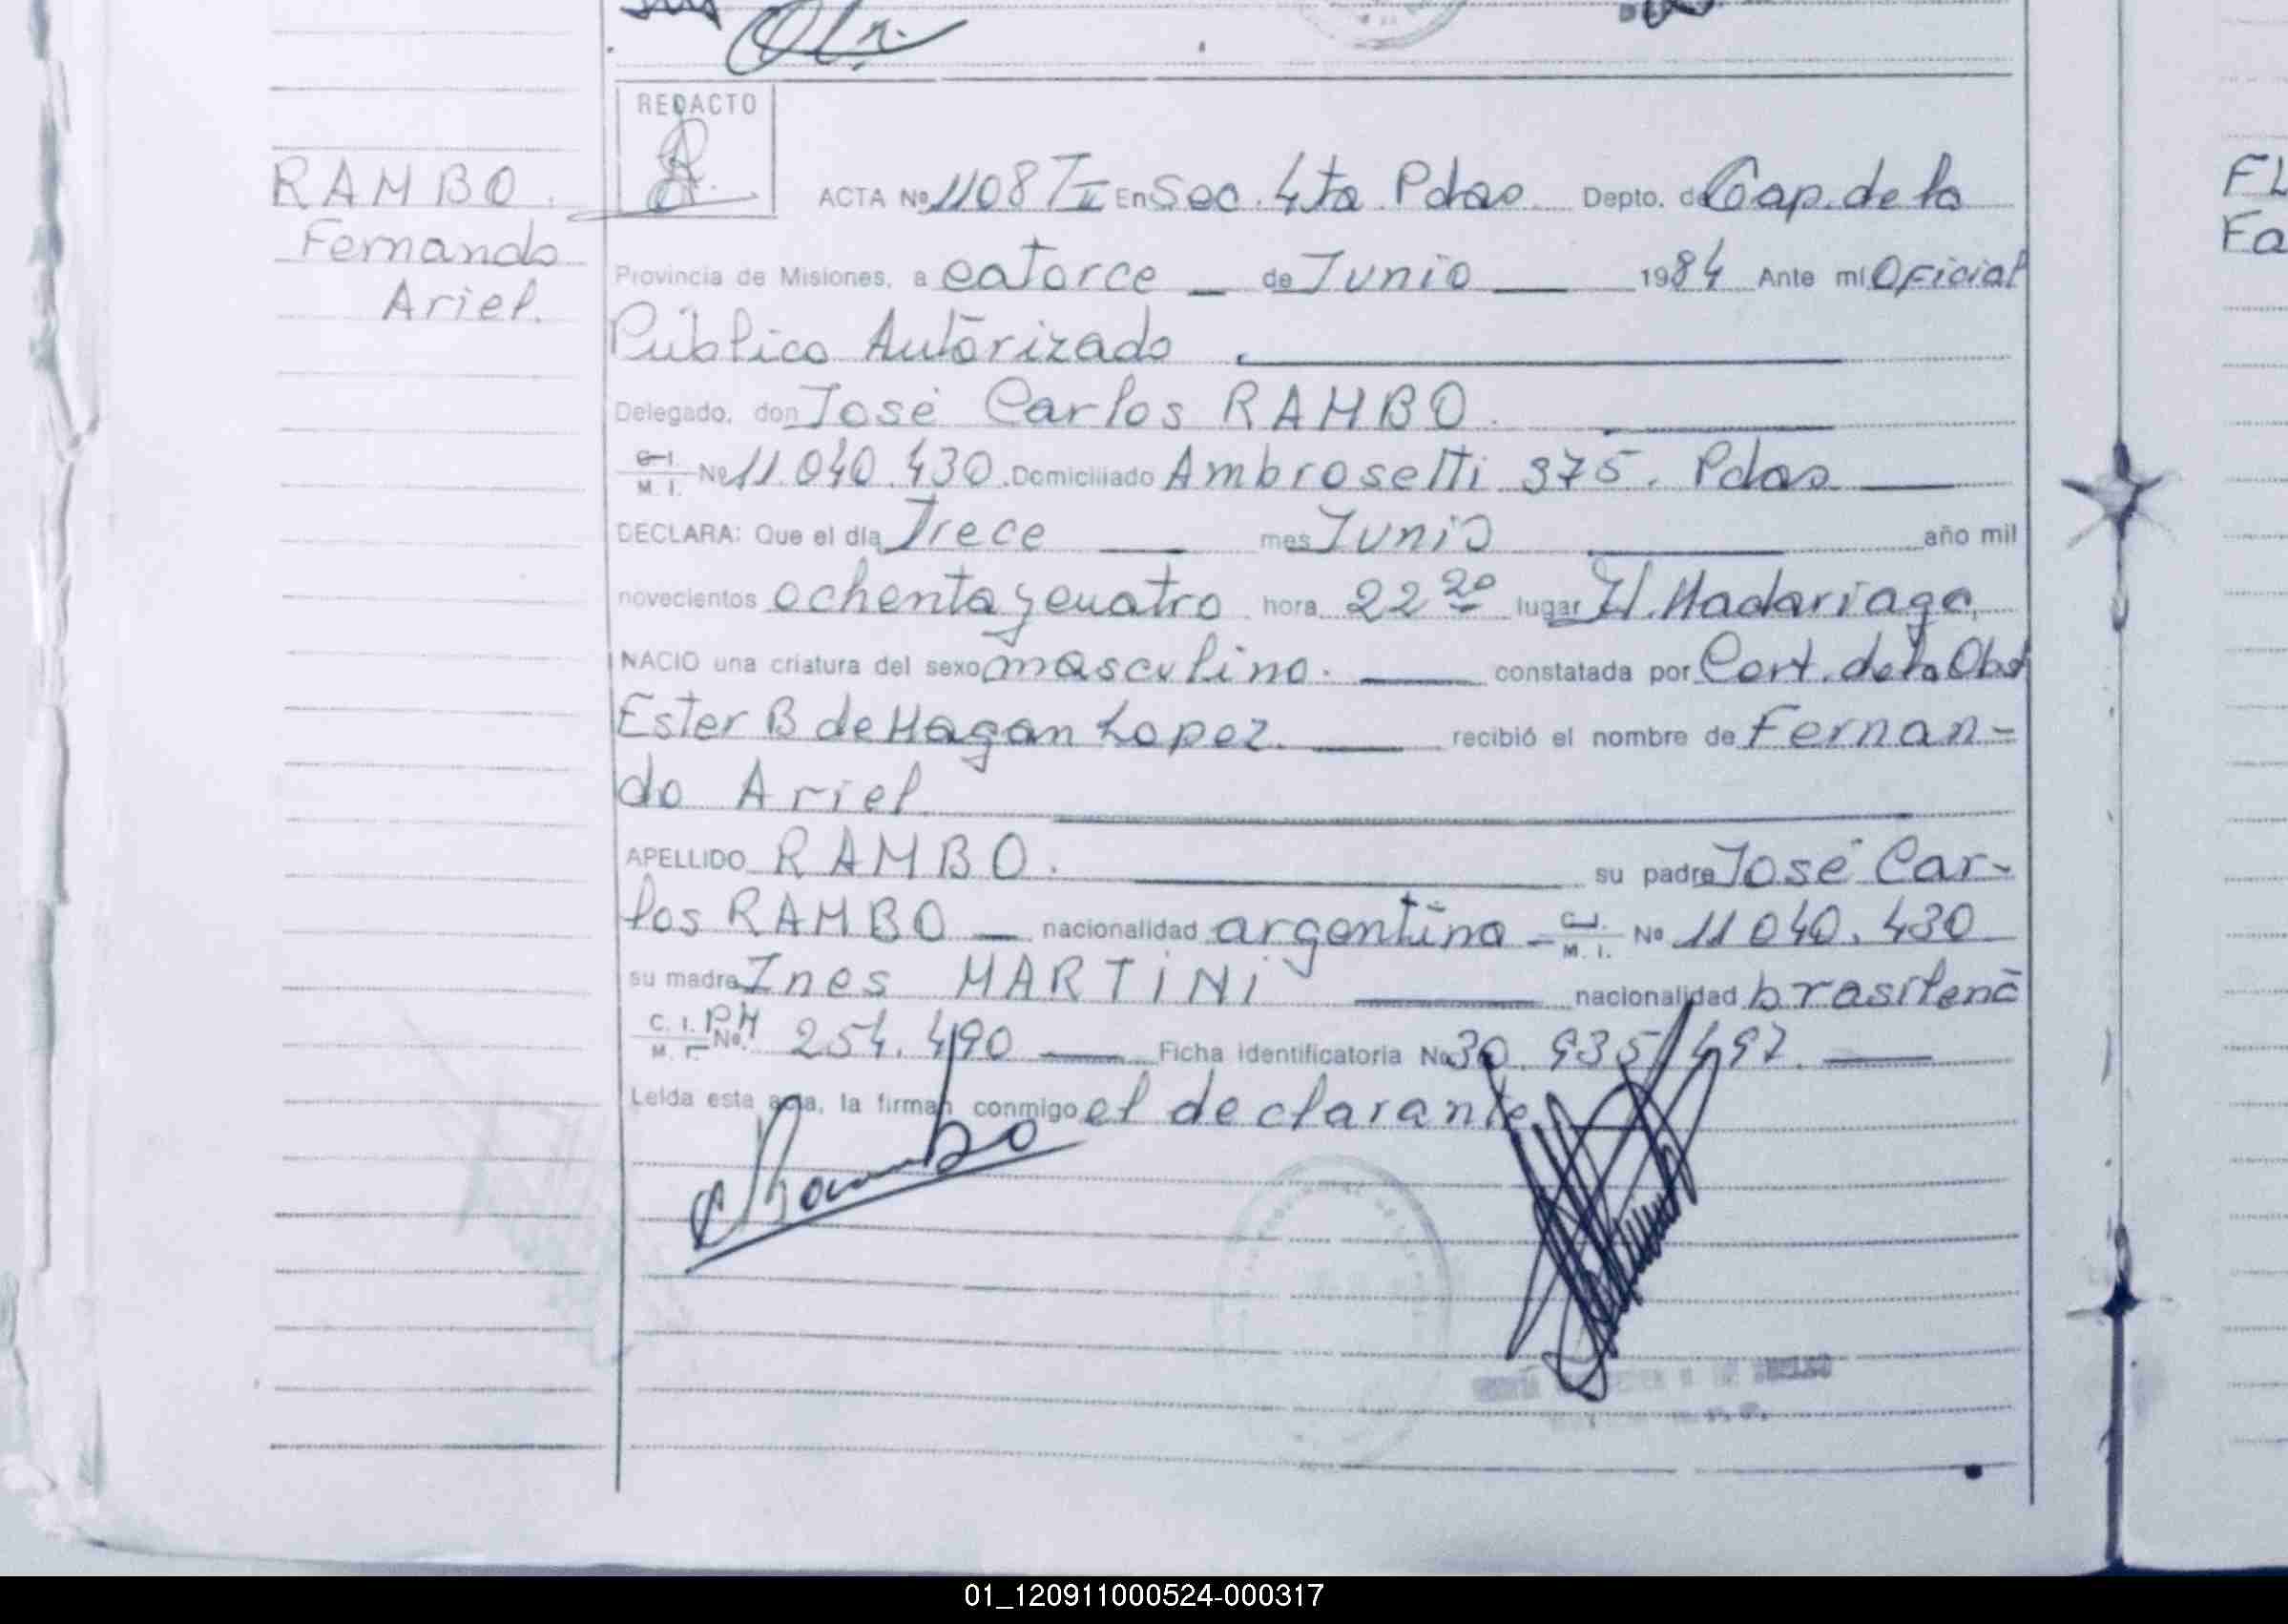 REDACTO
RAMBO.
Fernando
Ariel.
ACTA Nº 1108 TII En Sec. 4ta Pdas Depto. de Cap. de la
Provincia de Misiones, a catorce _ de Junio 1984 Ante mí Oficial
Público Autorizado
Delegado, don José Carlos RAMBO.
C.I. M. I. Nº 11.040.430. Domiciliado Ambrosetti 375. Pdas
DECLARA: Que el día Trece mes Junio año mil
novecientos ochenta y cuatro hora 22 20 lugar H. Madariaga,
NACIO una criatura del sexo masculino. constatada por Cert. de la Obst
Ester B de Hagan Lopez. recibió el nombre de Fernan-
do Ariel
APELLIDO RAMBO. su padre José Car-
los RAMBO nacionalidad argentina - C.I. M. I. Nº 11 040.430
su madre Ines MARTINI nacionalidad brasileña
C. I. M. I. Nº 254.490 Ficha identificatoria Nº 30.935/497.
Leída esta acta, la firman conmigo el declarante
Rambo
FL
Fa
01_120911000524-000317